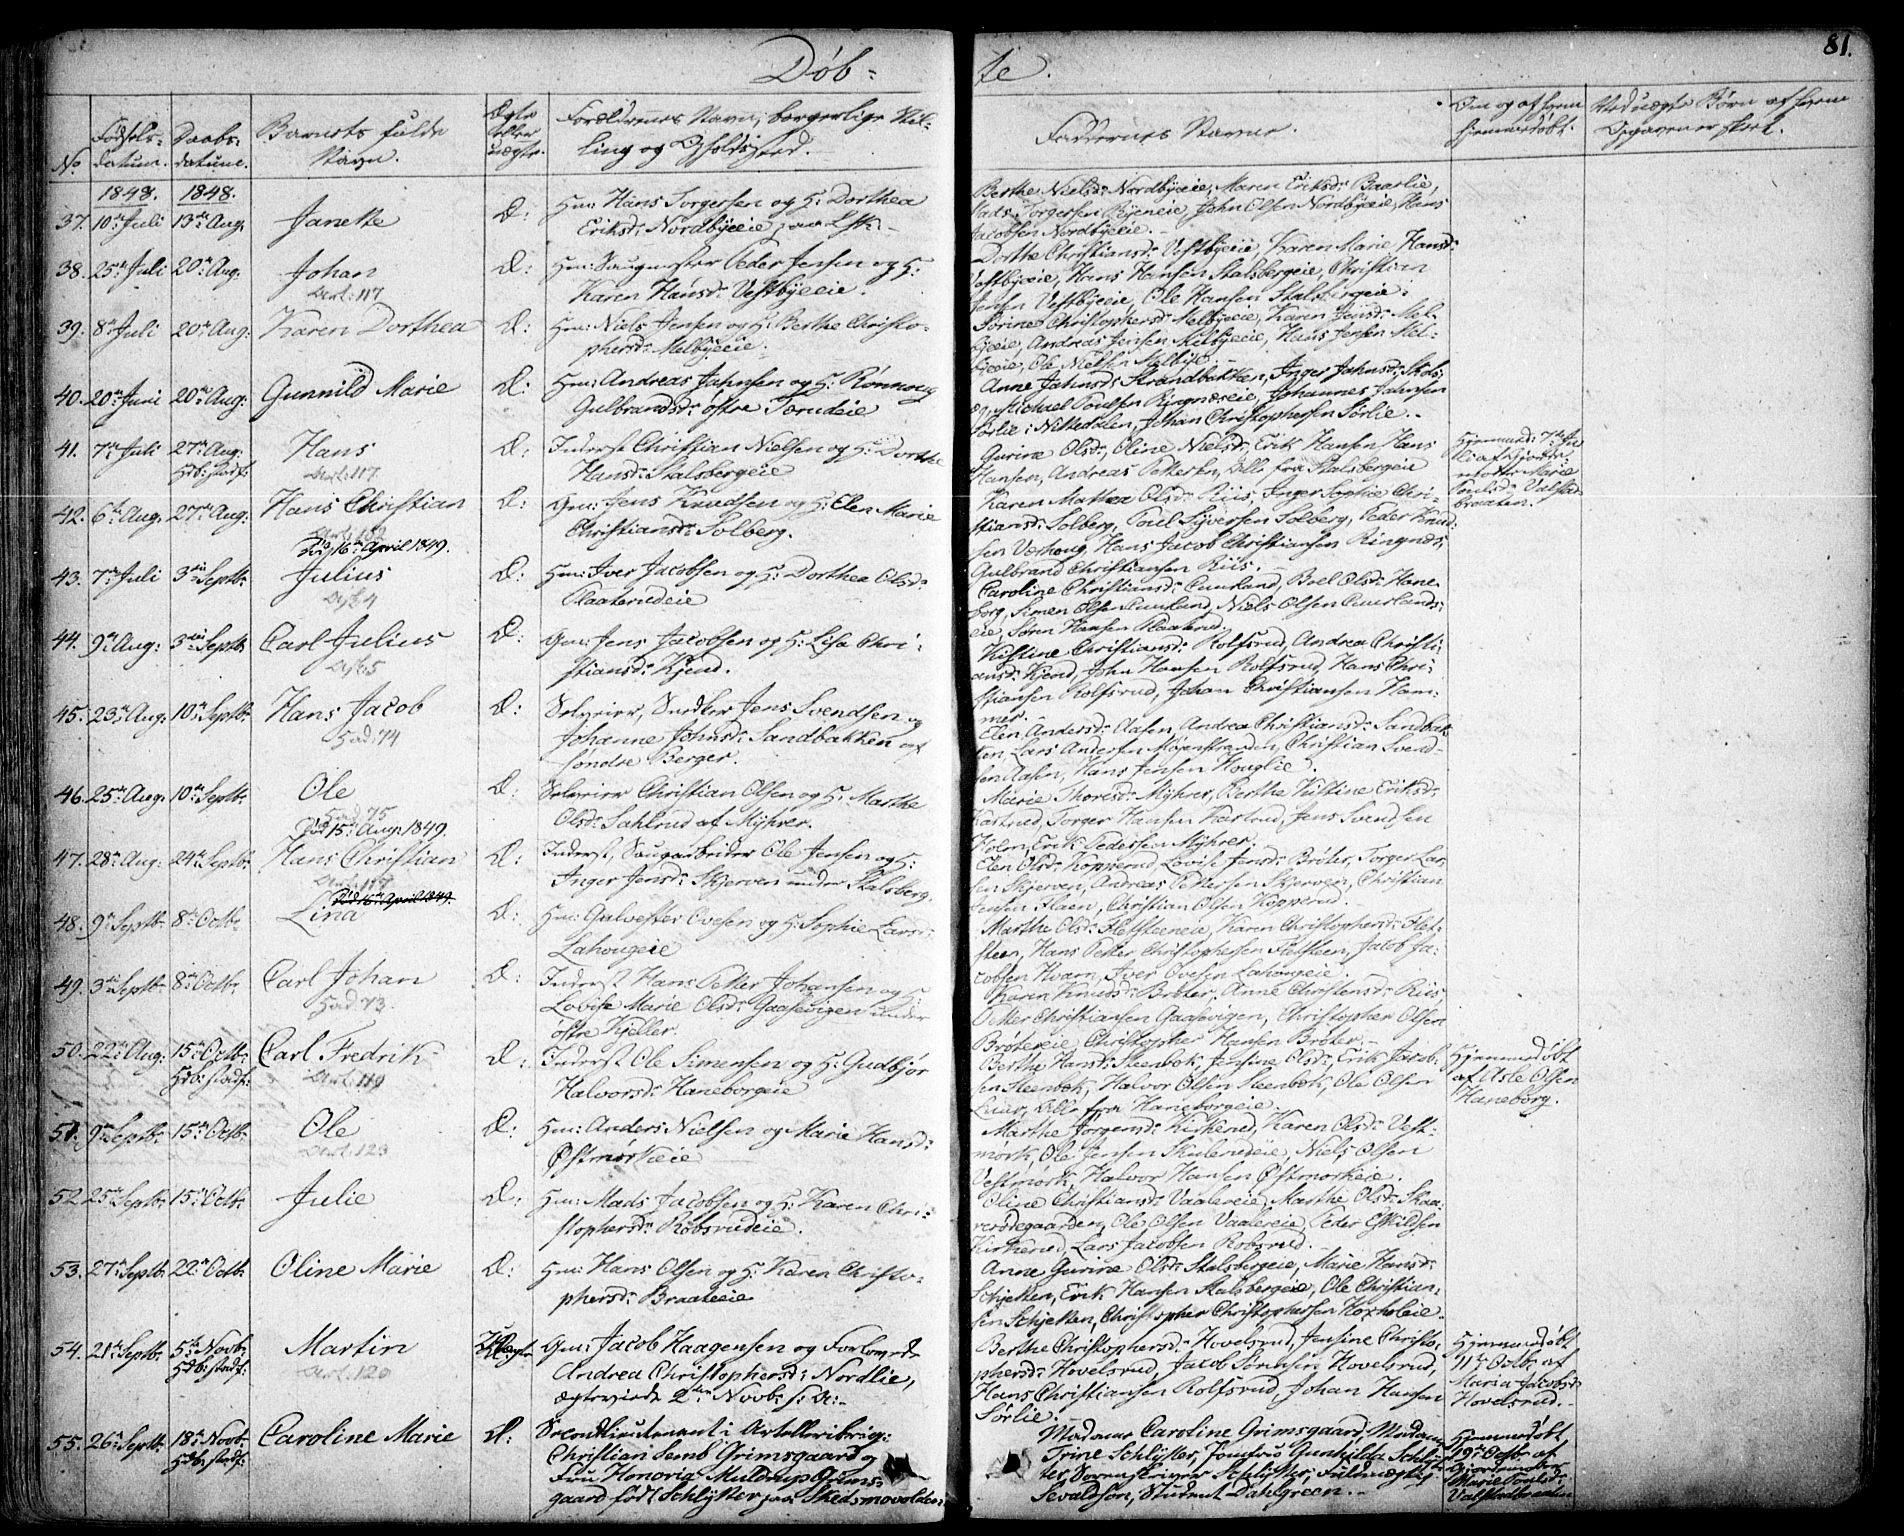 Døb-
te.
81.
No
Fødsels-
datum.
Daabs-
datum.
Barnets fulde
Navn.
Ægte
eller
uægte.
Forældrenes Navn, borgerlige Stil-
ling og Opholdssted.
Faddernes Navne.
Om og af hvem
hjemmedøbt.
Ved uægte Børn af hvem
Opgaven er skeet.
1848. 1848.
37. 10de Juli 13de Aug. Janette Æ: Hm: Hans Torgersen og H: Dorthea
Eriksd: Nordbyeeie
Berthe Nielsd: Nordbyeeie, Maren Eriksd: Baarlie,
Mads Torgersen Ryeneie, John Olsen Nordbyeeie, Hans
Jacobsen Nordbyeeie.
38. 25de Juli 20de Aug. Johan Æ: Hm: Saugmester Peder Jensen og H:
117
Karen Hansd: Vestbyeeie.
Dorthe Christiansd: Vestbyeeie, Karen Marie Hansd:
Vestbyeeie, Hans Hansen Stalsbergeie, Christian
Jensen Vestbyeeie, Ole Hansen Stalsbergeie.
39. 8de Juli 20de Aug. Karen Dorthea Æ: Hm: Niels Jensen og H: Berthe Christo-
phersd: Melbyeeie.
Dorine Christophersd: Melbyeeie, Karen Jensd: Mel-
byeeie, Andreas Jensen Melbyeeie, Hans Jensen Mel-
byeeie, Ole Nielsen Melbye.
40. 20de Juni 20de Aug: Gunnild Marie Æ: Hm: Andreas Jahnsen og H: Rønnoug
Gulbrandsd: østre Tærudeie
Anne Jahnsd: Strandbakken, Inger Jahnsd:
Michael Poulsen Ringnæseie, Johannes Jahnsen
Sørlie i Nittedalen, Johan Christophersen Sørlie.
41. 7de Juli 27de Aug: Hans Æ: Inderst Christian Nielsen og H: Dorthe
Hdb: stadf. 117
Hansd: Stalsbergeie
Gurine Olsd:, Oline Nielsd:, Erik Hansen, Hans
Hansen, Andreas Pettersen, Alle fra Stalsbergeie
Hjemmed: 7de Ju-
li af Gjorde-
moder Marie
Poulsd: Valstad-
braaten.
42. 6te Aug. 27de Aug: Hans Christian Æ: Gm: Jens Knudsen og H: Elen Marie
Død 16de April 1849.
Christiansd: Solberg.
Karen Mathea Olsd: Riis, Inger Sophie Chri-
stiansd: Solberg, Poul Syversen Solberg, Peder Knud-
sen Værhoug, Hans Jacob Christiansen Ringnæs,
Gulbrand Christiansen Riis.
43. 7de Juli 3die Septb: Julius Æ: Hm: Iver Jacobsen og H: Dorthea Olsd:
4
Plaaterudeie
Caroline Christiansd: Cuurland, Boel Olsd: Hane-
borg, Simen Olsen Cuurland, Niels Olsen Cuurlands-
eie, Søren Hansen Plaaterud.
44. 9de Aug: 3die Septb: Carl Julius Æ: Gm: Jens Jacobsen og H: Lisa Chri-
5
stiansd: Kjend.
Kistine Christiansd: Rolfsrud, Andrea Christi-
ansd: Kjend, John Hansen Rolfsrud, Hans Chri-
stiansen Rolfsrud, Johan Christiansen Ham-
mer.
45. 23de Aug: 10de Septb: Hans Jacob Æ: Selveier, Snedker Jens Svendsen og
74
Johanne Johnsd: Sandbakken af
søndre Berger.
Elen Andersd: Aasen, Andrea Christiansd: Sandbak-
ken, Lars Andersen Mojenstranden, Christian Svend-
sen Aasen, Hans Jensen Houglie.
46. 25de Aug: 10de Septb: Ole Æ: Selveier Christian Olsen og H: Marthe
75
Død 15de Aug: 1849.
Olsd: Sahlrud af Myhrer.
Marie Thoresd: Myhrer, Berthe Kistine Eriksd:
Karlrud, Torger Hansen Karlrud, Jens Svendsen
Holm, Erik Pedersen Myhrer.
47. 28de Aug: 24de Septb: Hans Christian Æ: Inderst, Saugarbeider Ole Jensen og H:
117
Inger Jensd: Skjerven under Stalsberg.
Elen Olsd: Kopperud, Lovise Jensd: Brøter, Torger Lar-
sen Skjerven, Andreas Pettersen Skjerven, Christian
Jensen Flaen, Christian Olsen Kopperud.
Død 16de April 1849.
48. 9de Septb: 8de Octb: Lina Æ: Hm: Galvester Ovesen og H: Sophie Larsd:
Lahougeie
Marthe Olsd: Fletsteeneie, Karen Christophersd: Flet-
steen, Hans Petter Christophersen Fletsteen, Jacob Ja-
cobsen Hvarn, Iver Ovesen Lahougeie.
49. 3die Septb: 8de Octb: Carl Johan Æ: Inderst Hans Petter Johansen og H:
73.
Lovise Marie Olsd: Gaasevigen under
østre Kjeller.
Karen Knudsd: Brøter, Anne Christensd: Riis,
Petter Christiansen Gaasevigen, Christopher Olsen
Brøtereie, Christopher Hansen Brøter.
50. 22de Aug: 15de Octb: Carl Fredrik Æ: Inderst Ole Simensen og H: Gudbjør
Hdb: stadf:
Halvorsd: Haneborgeie
Berthe Hansd: Steenbøk, Jensine Olsd:, Erik Jacob-
sen Steenbøk, Halvor Olsen Steenbøk, Ole Olsen
Luur, Alle fra Haneborgeie.
Hjemmedøbt
af Asle Olsen
Haneborg.
51. 9de Septb: 15de Octb: Ole Æ: Hm: Anders Nielsen og Marie Hansd:
123
Østmorkeie
Marthe Jørgensd: Kirkerud, Karen Olsd: Vest-
mork, Ole Jensen Skulerudeie, Niels Olsen
Vestmork, Halvor Hansen Østmorkeie.
52. 25de Septb: 15de Octb: Julie Æ: Hm: Mads Jacobsen og H: Karen Chri-
stophersd: Robsrudeie.
Oline Christiansd: Vaalereie, Marthe Olsd: Skaa-
rersødegaarden, Ole Olsen Vaalereie, Peder Eskildsen
Kirkerud, Lars Jacobsen Robsrud.
53. 27de Septb: 22de Octb: Oline Marie Æ: Hm: Hans Olsen og H: Karen Christo-
phersd: Braateeie
Anne Gurine Olsd: Stalsbergeie, Marie Hansd:
Schjetten, Erik Hansen Stalsbergeie, Ole Christian-
sen Schjetten, Christopher Christophersen Hoxholeie.
54. 21de Septb: 5te Novb: Martin Uægte Gm: Jacob Haagensen og Forlovede
Hdb: stadf: 120
Andrea Christophersd: Nordlie,
ægteviede 2den Novb: s: A:
Berthe Christophersd: Hovelsrud, Jensine Christo-
phersd: Hovelsrud, Jacob Sørensen Hovelsrud,
Hans Christiansen Rolfsrud, Johan Hansen
Sørlie.
Hjemmedøbt
11te Octb: af
Maria Jacobsd:
Hovelsrud.
55. 26de Septb: 18de Novb: Caroline Marie Æ: Secondlieutenant i Artilleribrig:
Hdb: stadf:
Christian Semb Grimsgaard og
Fru Honoria Muldrup Grims-
gaard født Schlytter paa Skedsmovolden.
Madame Caroline Grimsgaard, Madam
Trine Schlytter, Jomfru Gunhilda Schlyt-
ter, Sorenskriver Schlytter, Fuldmægtig
Sevaldsøn, Student Dahlgreen.
Hjemmedøbt
19de Octb: af
Gjordemoder
Marie Poulsd:
Valstadbraaten